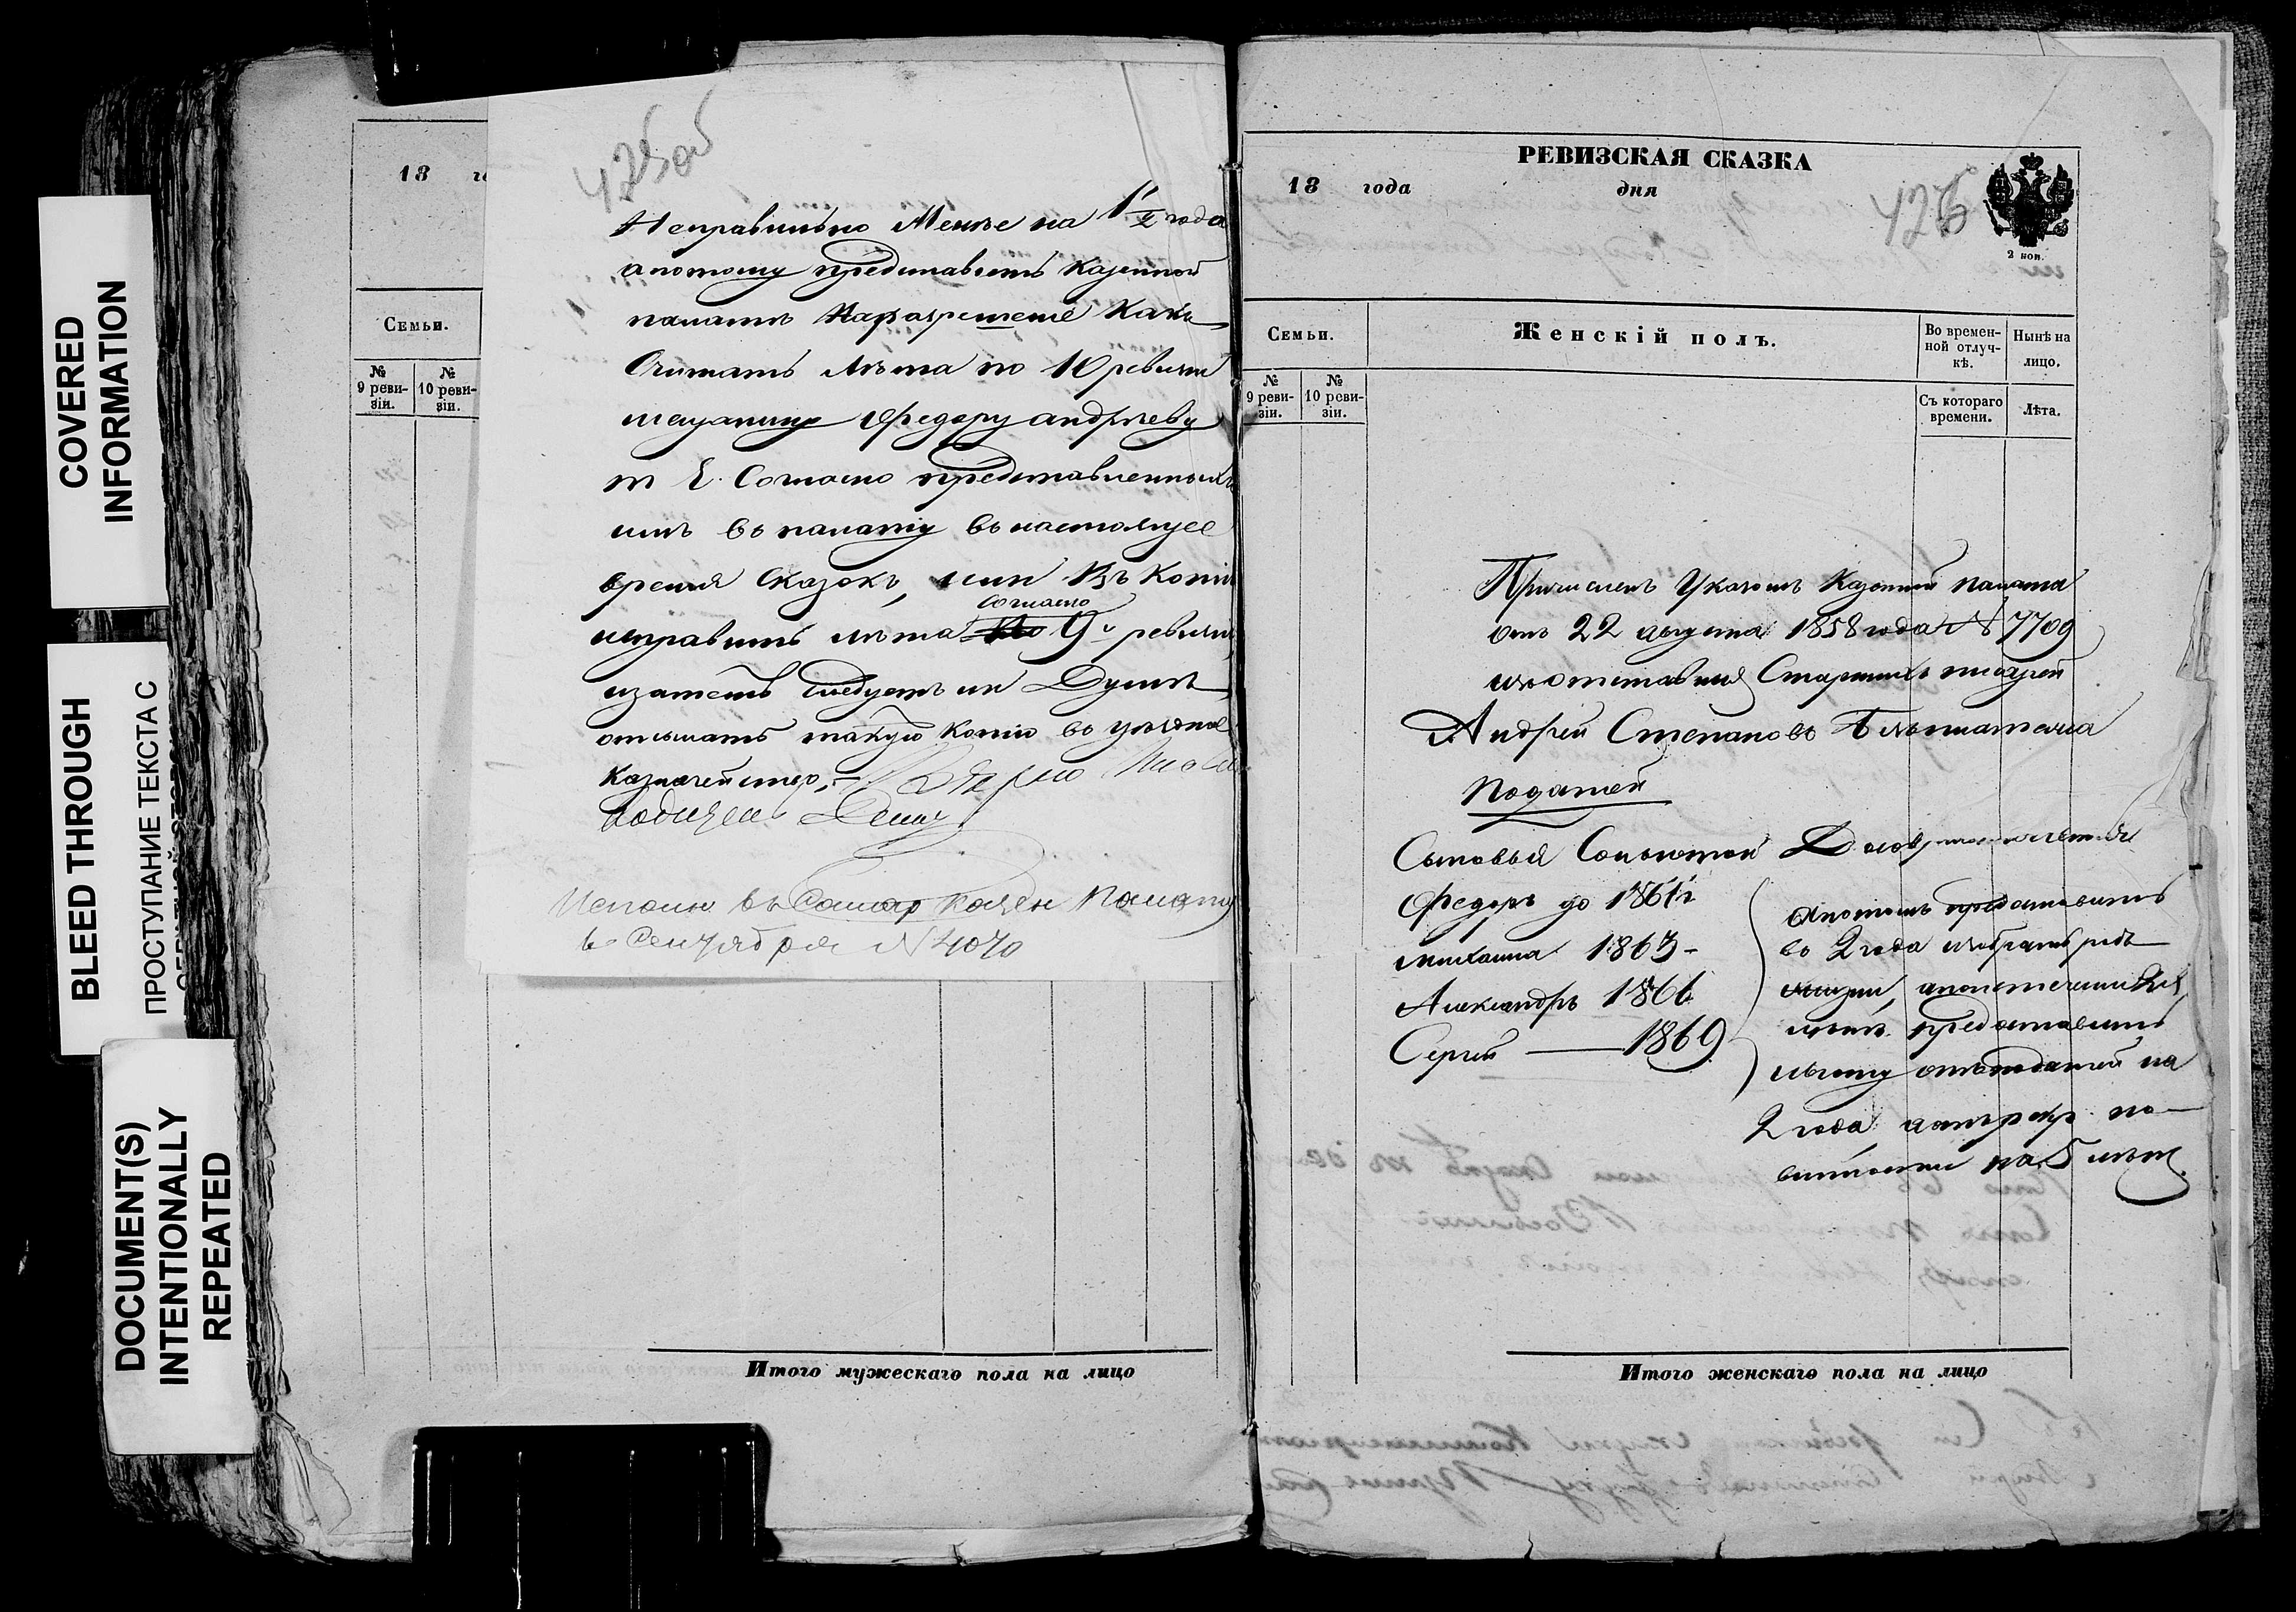 COVERED
INFORMATION
BLEED THROUGH
ПРОСТУПАНИЕ ТЕКСТА С
DOCUMENT(S)
INTENTIONALLY
REPEATED
18 го
Семьи.
№ 9 реви-зіи.
№ 10 реви-зіи.
425об
Неправильно Менѣе на 1 1/2 года
апотому представить казенной
палатѣ Наразрешеніе Какъ
Считать лѣта по 10 ревизіи
мещанину Федору андрѣеву
т Е. Согласно представленныхъ
имъ въ палату въ настоящее
время Сказокъ, или Въ копіи
согласно
исправить лѣта 9й ревизіи
изатемъ следуетъ ли Думѣ
отсылать такую копію въ уѣздное
казначейство,
Исполн въ Самар Казен Палату
6 Сентября N 4070
Итого мужескаго пола на лицо
РЕВИЗСКАЯ СКАЗКА
18 года
дня
426
2 коп.
Семьи.
Женскій полъ.
Во времен-ной отлуч-кѣ.
Нынѣ на лицо.
№ 9 реви-зіи.
№ 10 реви-зіи.
Съ котораго времени.
Лѣта.
Причисленъ Указомъ Казенной палаты
отъ 22 августа 1858 года N 7709
изъотставныхъ Старшихъ писарей
Андрей Степановъ Безъплатежа
Податей
Сыновья Сольготой
Федоръ до 1861г
михаила 1863 -
Александръ 1866
Сергей — 1869
апотомъ предоставить
во 2 года избрать родъ
жизни, апоистечении 2хъ
лѣтъ предоставить
льготу отъподатей на
2 года, аотъ рекр. по-
винности на 5 лѣтъ
Итого женскаго пола на лицо